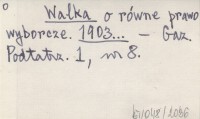 o
Walka o równe prawo
wyborcze. 1903... - Gaz.
Podtatrz. 1, nr 8.